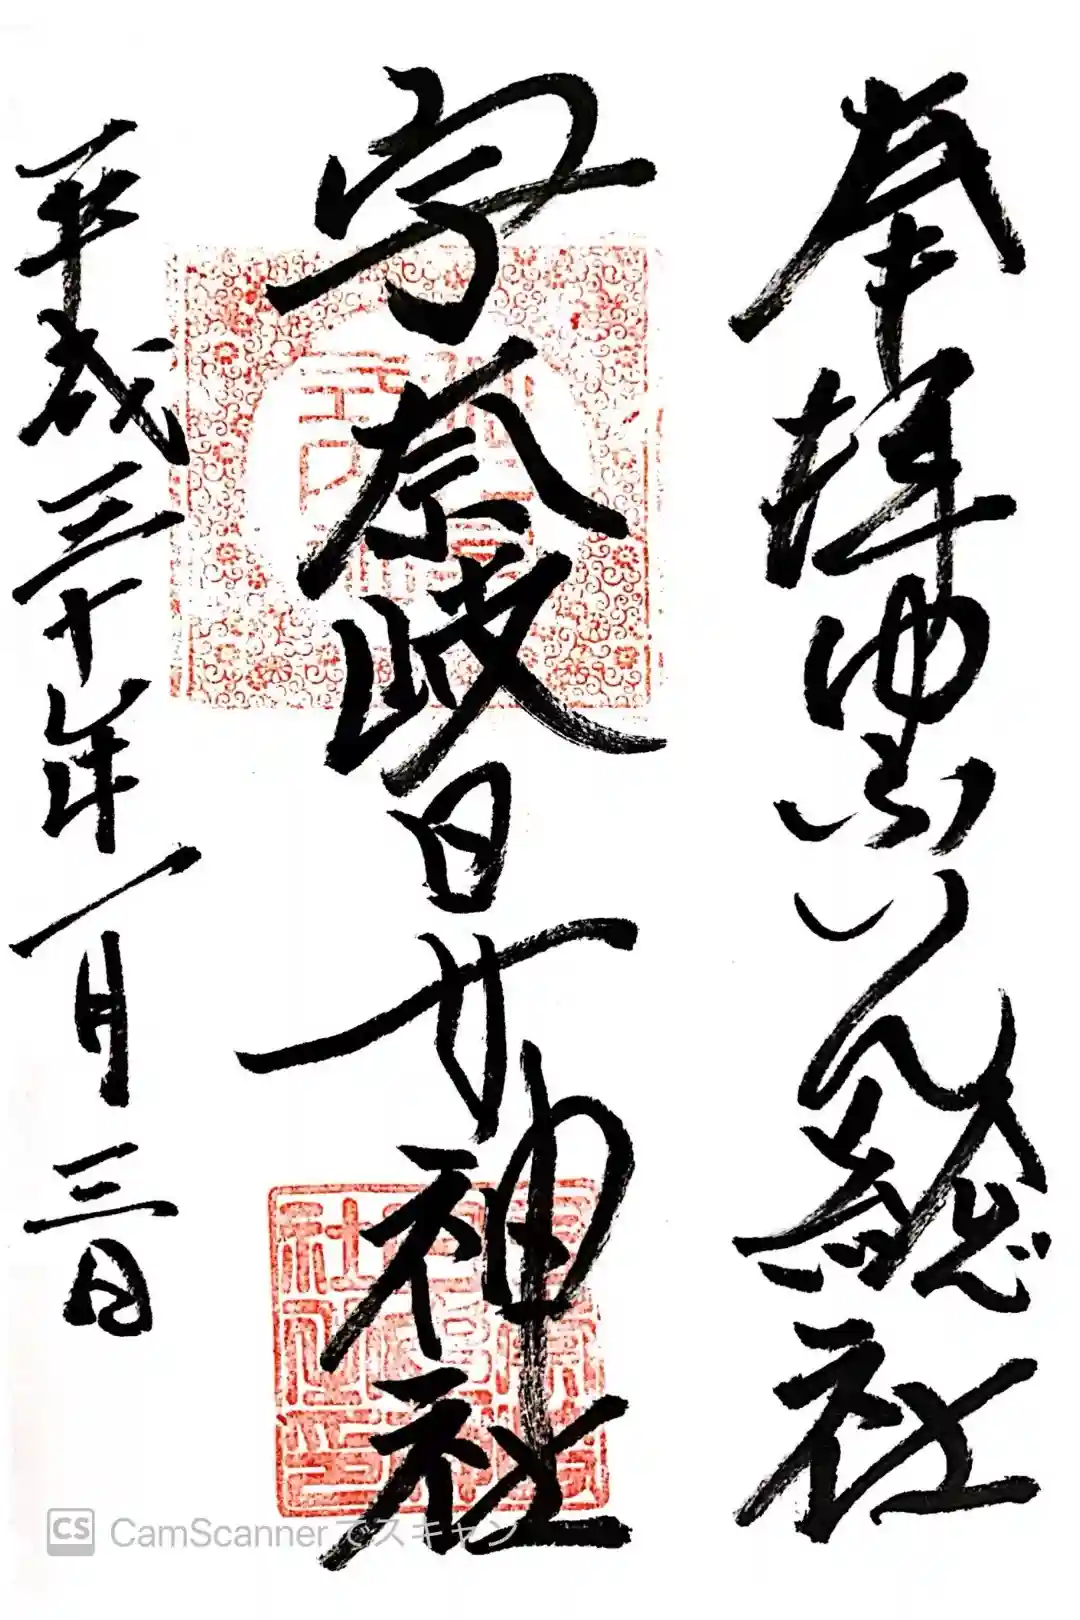 奉拝ゆふいん總社
宇奈岐日女神社
平成三十年一月三日
CS CamScanner でスキャン